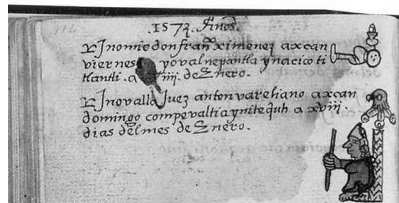 1573. Años.
Yn omic don franco ximenez axcan
viernes yovalnepantla ynacioti
tlantli. a iiii. de Enero.
Yn ovalla Juez anton vareliano axcan
domingo compevalti a ynitequh a xviii.
dias del mes de Enero.